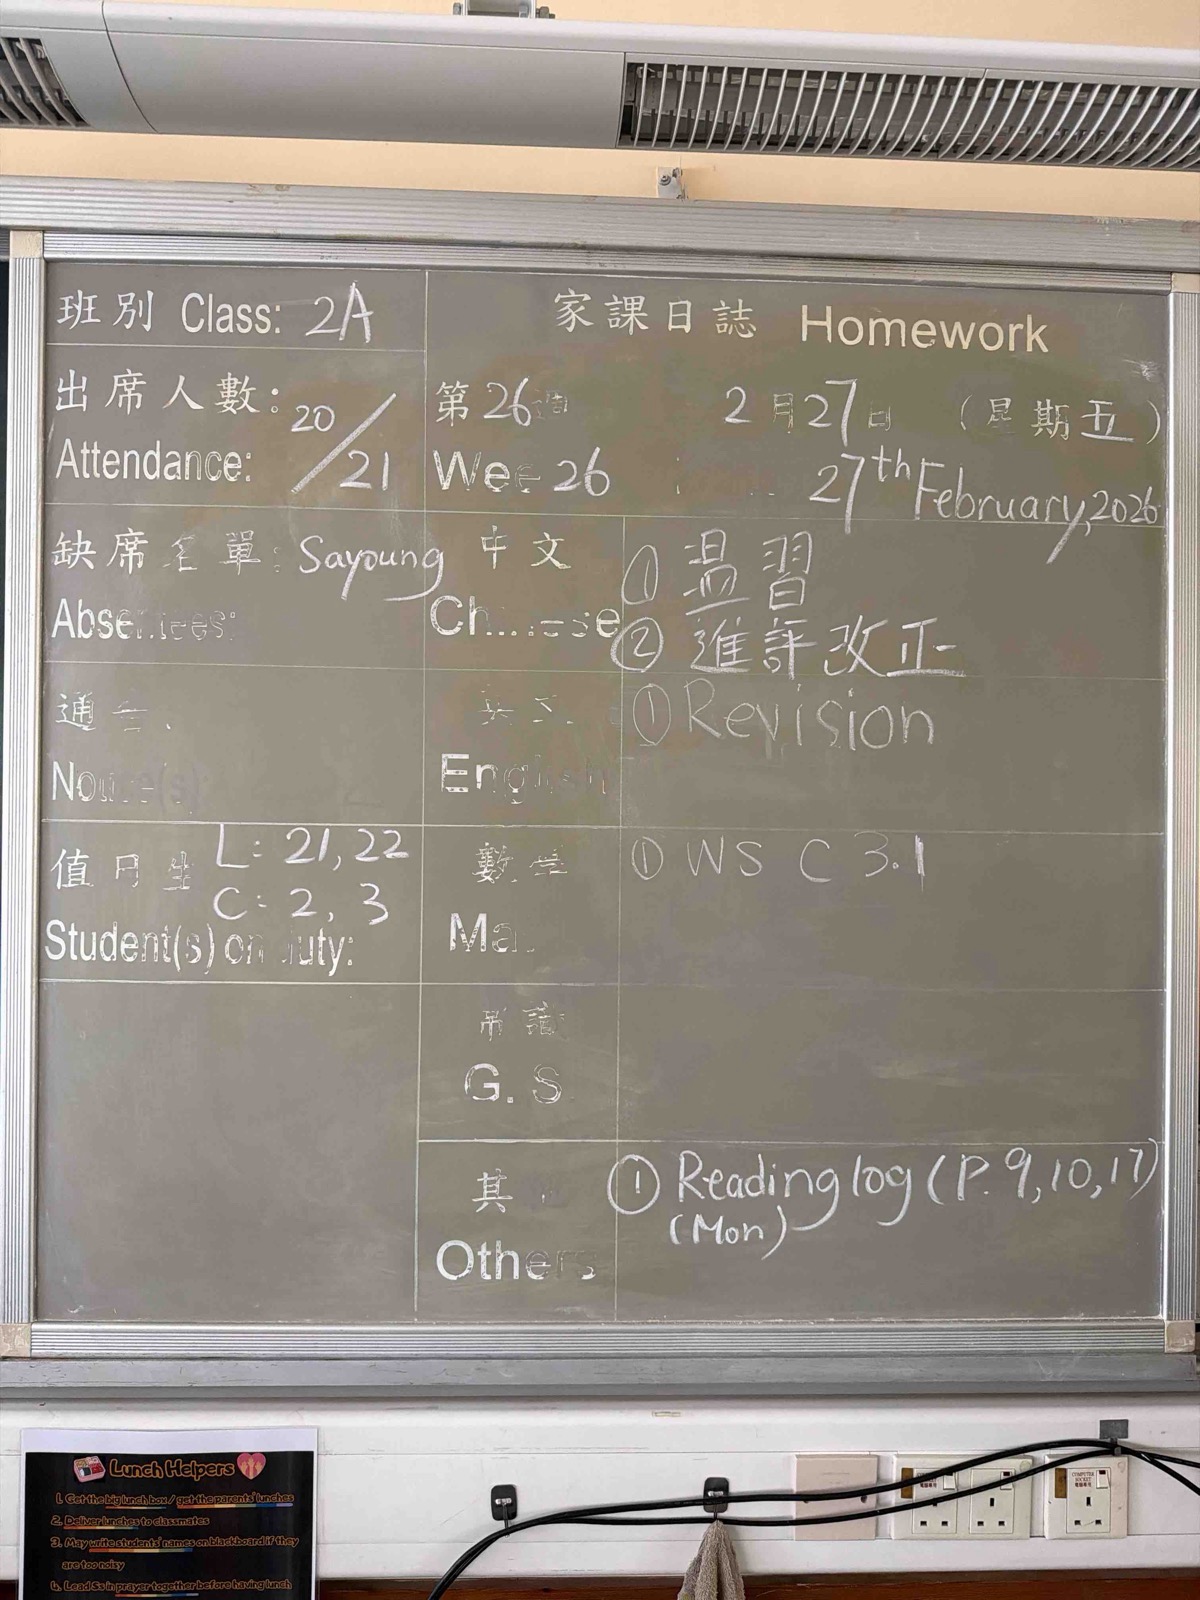 班別 Class: 2A
出席人數: 20/21
Attendance:
缺席名單: Sayoung
Absentees:
通告
Notice(s):
值日生 L: 21, 22
C: 2, 3
Student(s) on duty:
家課日誌 Homework
第26週 2月27日 (星期五)
Wee 26 27th February, 2026
中文 ① 溫習
Chinese ② 進評改正
英文 ① Revision
English
數學 ① WS C 3.1
Ma
常識
G. S.
其 ① Reading log (P. 9, 10, 17)
(Mon)
Others
Lunch Helpers
1. Get the big lunch box / get the parents' lunches
2. Deliver lunches to classmates
3. May write students' names on blackboard if they
are too noisy
4. Lead Ss in prayer together before having lunch
COMPUTER
SOCKET
電腦專用